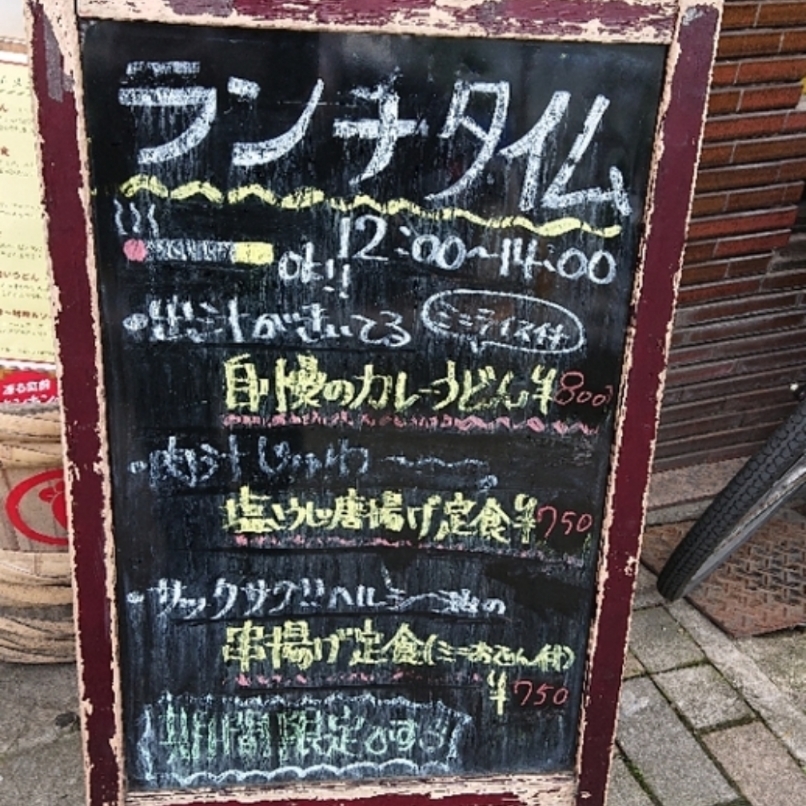 ランチタイム
12:00~14:00
OK!!
・出汁がきいてる
ミニライス付
自慢のカレーうどん ¥800
・肉汁じゅわ〜〜〜
塩こうじ唐揚げ定食 ¥750
・サックサク!!ヘルシー油の
串揚げ定食(ミニおでん付)
¥750
期間限定です